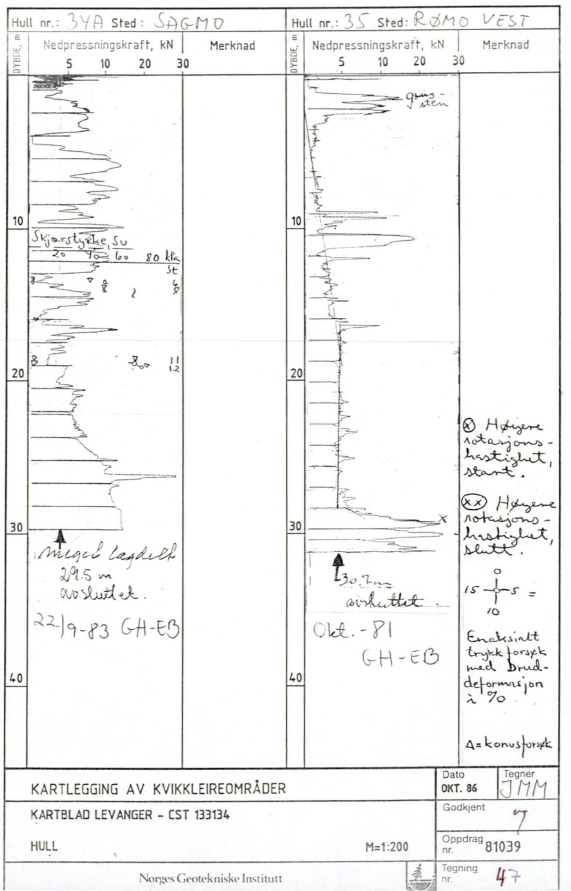 Hull nr.: 34A Sted: SAGMO
DYBDE, m
Nedpressningskraft, kN
Merknad
5 10 20 30
10
Skjærstyrke, Su
20 40 60 80 kPa
St
11
12
20
30
meget lagdelt
29.5 m
avsluttet.
22/9-83 GH-EB
40
Hull nr.: 35 Sted: RØMO VEST
DYBDE, m
Nedpressningskraft, kN
Merknad
5 10 20 30
grus-
sten
10
20
x
30
30.7m
avsluttet.
Okt. -81
GH-EB
40
(x) Høiere
rotasjons-
hastighet,
start.
(xx) Høiere
rotasjons-
hastighet,
slutt.
0
15 5 =
10
Enaksialt
trykkforsøk
med brud-
deformasjon
i %
∆=konusforsøk
KARTLEGGING AV KVIKKLEIREOMRÅDER
KARTBLAD LEVANGER - CST 133134
HULL M=1:200
Norges Geotekniske Institutt
Dato
OKT. 86
Tegner
JMM
Godkjent
Oppdrag
nr. 81039
Tegning
nr. 47